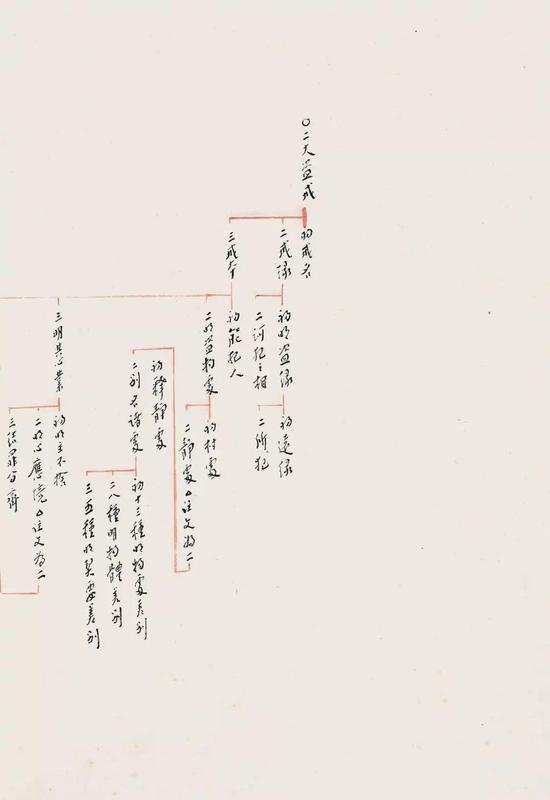 ○二大盜戒
初戒名
二戒緣
三戒本
初明盜緣
二訶犯之相
初遠緣
二所犯
初能犯人
二明盜物處
初村處
二靜處△注文為二
初釋靜處
二別名諸處
初十三種明物處差別
二八種明物體差別
三五種明契要差別
三明其心業
初明主不捨
二明心應境△注文為二
三結罪分齊